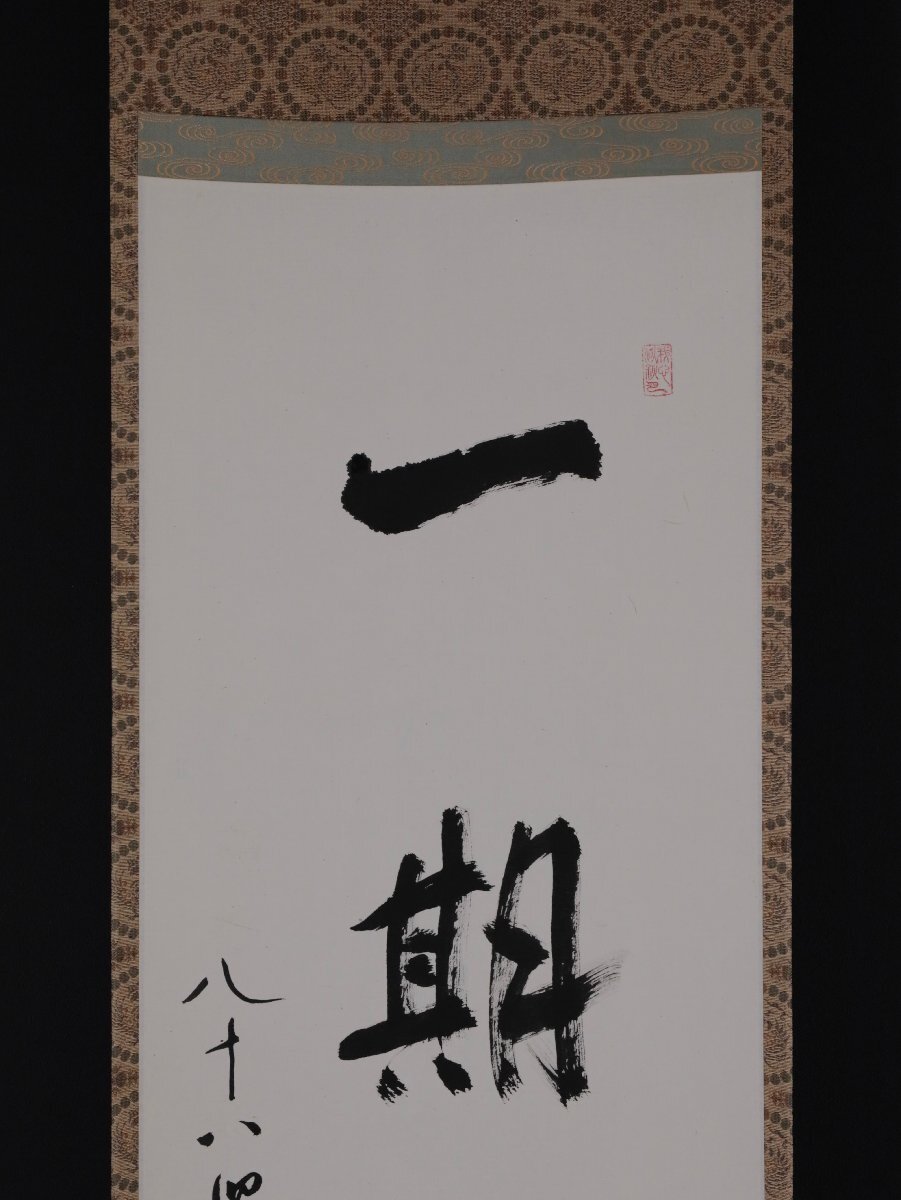 一期
八十八